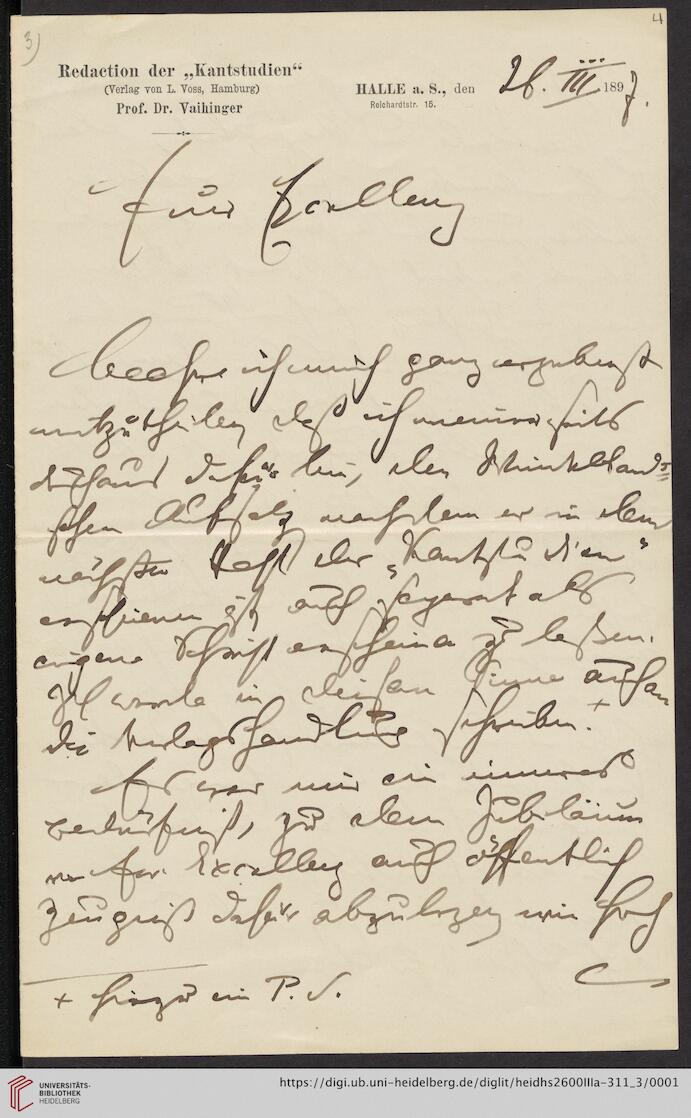 3)
4
Redaction der „Kantstudien“
(Verlag von L. Voss, Hamburg)
Prof. Dr. Vaihinger
HALLE a. S., den 26. III. 1897.
Reichardtstr. 15.
Euer Excellenz
beehre ich mich ganz ergebenst
mitzutheilen daß ich meinerseits
durchaus dafür bin, den Windelband-
schen Aufsatz nachdem er in dem
nächsten Heft der „Kantstudien“
erschienen ist, auch separat als
eigene Schrift erscheinen zu laßen.
Ich werde in diesem Sinne auch an
die Verlagshandlung schreiben. +
Es war mir ein inneres
Bedürfniß, zu dem Jubiläum
Excellenz auch öffentlich
Zeugniß dafür abzulegen wie hoch
+ hiezu ein P. S.
UNIVERSITÄTS-
BIBLIOTHEK
HEIDELBERG
https://digi.ub.uni-heidelberg.de/diglit/heidhs2600IIIa-311_3/0001